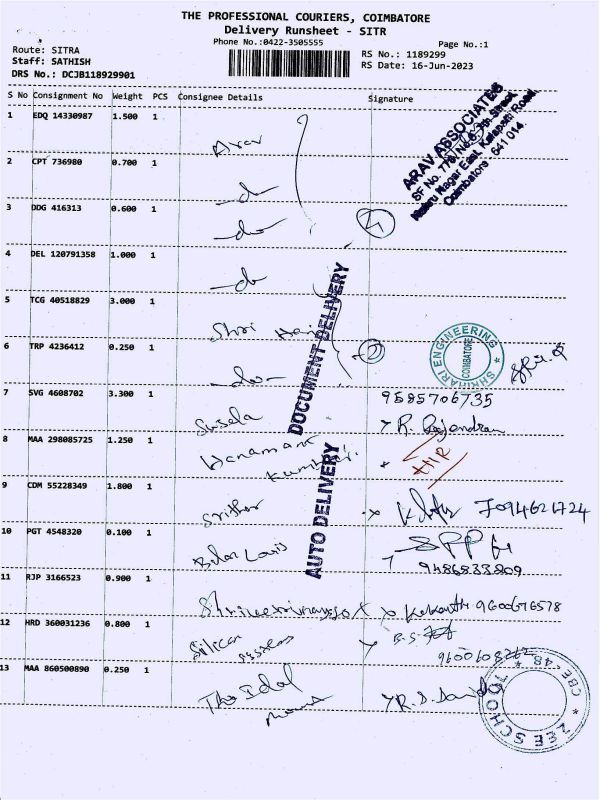 THE PROFESSIONAL COURIERS, COIMBATORE
Delivery Runsheet - SITR
Phone No.:0422-3505555
Page No.:1
Route: SITRA
Staff: SATHISH
DRS No.: DCJB118929901
RS No.: 1189299
RS Date: 16-Jun-2023
S No Consignment No Weight PCS Consignee Details Signature
1 EDQ 14330987 1.500 1 Arav
ARAV ASSOCIATES
Coimbatore - 641 014.
2 CPT 736980 0.700 1 -do-
3 DDG 416313 0.600 1 -do- 4
4 DEL 120791358 1.000 1 -do-
5 TCG 40518829 3.000 1 Shri Hari
6 TRP 4236412 0.250 1 -do- 2
SHRIHARI ENGINEERING
COIMBATORE
DOCUMENT DELIVERY
AUTO DELIVERY
7 SVG 4608702 3.300 1 Susela
9585706735
R. Rajendran
8 MAA 298085725 1.250 1 Hanamant
9 CDM 55228349 1.800 1 Srither 7094621724
10 PGT 4548320 0.100 1
9486833809
11 RJP 3166523 0.900 1
9600676578
12 HRD 360031236 0.800 1 Silicon
13 MAA 860500890 0.250 1 The Idol
R.S. David
ZEE SCHOOL
CBE-48